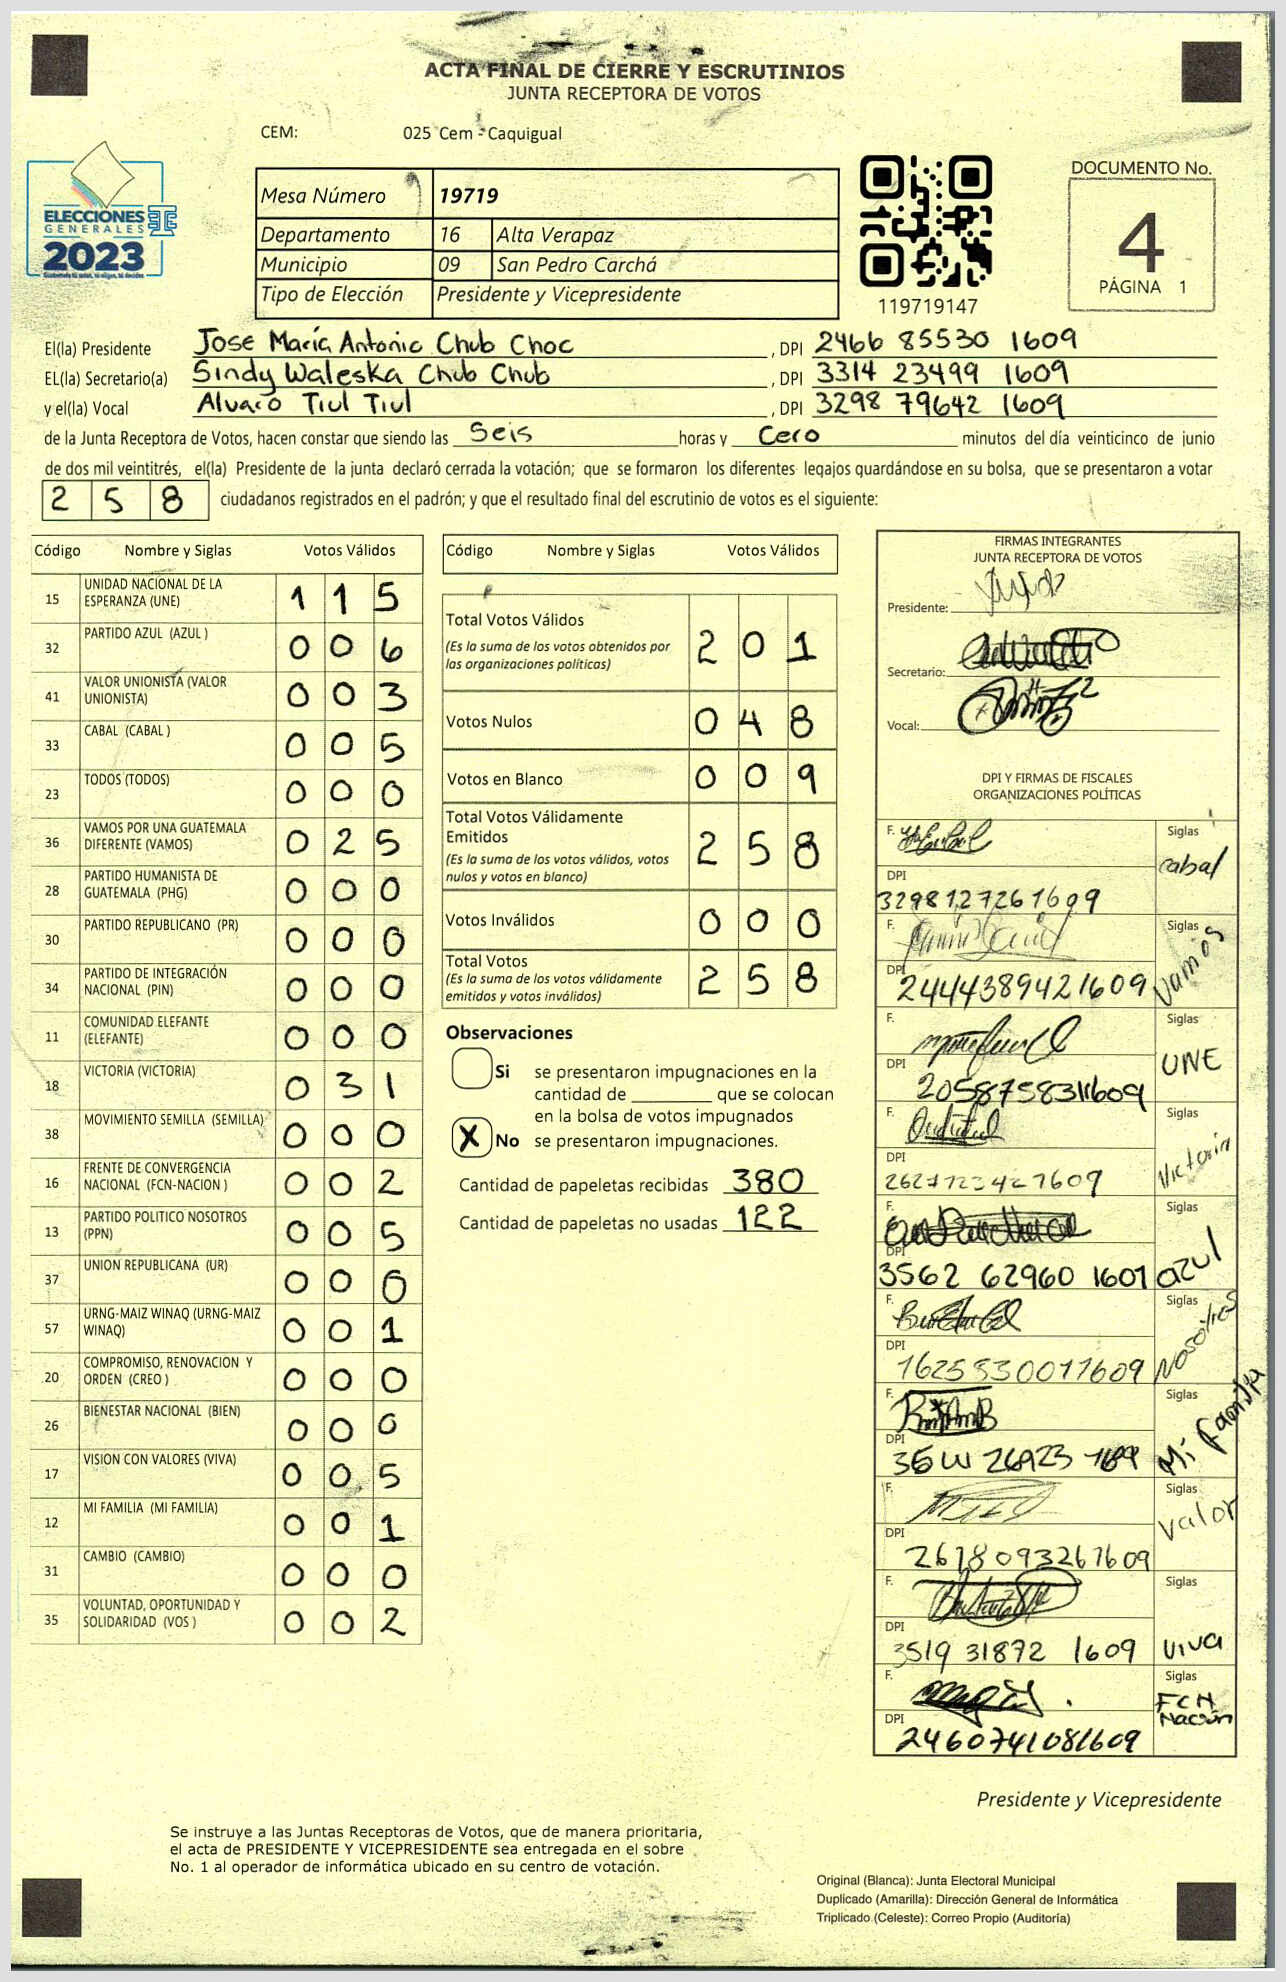 ACTA FINAL DE CIERRE Y ESCRUTINIOS
JUNTA RECEPTORA DE VOTOS
CEM: 025 Cem - Caquigual
ELECCIONES
GENERALES
2023
Mesa Número 19719
Departamento 16 Alta Verapaz
Municipio 09 San Pedro Carchá
Tipo de Elección Presidente y Vicepresidente
119719147
DOCUMENTO No.
4
PÁGINA 1
El(la) Presidente Jose María Antonio Chub Choc, DPI 2466 85530 1609
EL(la) Secretario(a) Sindy Waleska Chub Chub, DPI 3314 23499 1609
y el(la) Vocal Alvaro Tiul Tiul, DPI 3298 79642 1609
de la Junta Receptora de Votos, hacen constar que siendo las Seis horas y Cero minutos del día veinticinco de junio
de dos mil veintitrés, el(la) Presidente de la junta declaró cerrada la votación; que se formaron los diferentes legajos guardándose en su bolsa, que se presentaron a votar
2 5 8 ciudadanos registrados en el padrón; y que el resultado final del escrutinio de votos es el siguiente:
Código Nombre y Siglas Votos Válidos
15 UNIDAD NACIONAL DE LA ESPERANZA (UNE) 1 1 5
32 PARTIDO AZUL (AZUL ) 0 0 6
41 VALOR UNIONISTA (VALOR UNIONISTA) 0 0 3
33 CABAL (CABAL ) 0 0 5
23 TODOS (TODOS) 0 0 0
36 VAMOS POR UNA GUATEMALA DIFERENTE (VAMOS) 0 2 5
28 PARTIDO HUMANISTA DE GUATEMALA (PHG) 0 0 0
30 PARTIDO REPUBLICANO (PR) 0 0 0
34 PARTIDO DE INTEGRACIÓN NACIONAL (PIN) 0 0 0
11 COMUNIDAD ELEFANTE (ELEFANTE) 0 0 0
18 VICTORIA (VICTORIA) 0 3 1
38 MOVIMIENTO SEMILLA (SEMILLA) 0 0 0
16 FRENTE DE CONVERGENCIA NACIONAL (FCN-NACION ) 0 0 2
13 PARTIDO POLITICO NOSOTROS (PPN) 0 0 5
37 UNION REPUBLICANA (UR) 0 0 0
57 URNG-MAIZ WINAQ (URNG-MAIZ WINAQ) 0 0 1
20 COMPROMISO, RENOVACION Y ORDEN (CREO ) 0 0 0
26 BIENESTAR NACIONAL (BIEN) 0 0 0
17 VISION CON VALORES (VIVA) 0 0 5
12 MI FAMILIA (MI FAMILIA) 0 0 1
31 CAMBIO (CAMBIO) 0 0 0
35 VOLUNTAD, OPORTUNIDAD Y SOLIDARIDAD (VOS ) 0 0 2
Código Nombre y Siglas Votos Válidos
Total Votos Válidos 2 0 1
(Es la suma de los votos obtenidos por
las organizaciones políticas)
Votos Nulos 0 4 8
Votos en Blanco 0 0 9
Total Votos Válidamente
Emitidos 2 5 8
(Es la suma de los votos válidos, votos
nulos y votos en blanco)
Votos Inválidos 0 0 0
Total Votos 2 5 8
(Es la suma de los votos válidamente
emitidos y votos inválidos)
Observaciones
Si se presentaron impugnaciones en la
cantidad de ________ que se colocan
en la bolsa de votos impugnados
X No se presentaron impugnaciones.
Cantidad de papeletas recibidas 380
Cantidad de papeletas no usadas 122
FIRMAS INTEGRANTES
JUNTA RECEPTORA DE VOTOS
Presidente:
Secretario:
Vocal:
DPI Y FIRMAS DE FISCALES
ORGANIZACIONES POLÍTICAS
F. Siglas cabal
DPI 3298127261609
F. Siglas Vamos
DPI 2444389421609
F. Siglas UNE
DPI 2058758311609
F. Siglas Victoria
DPI
F. Siglas azul
DPI 3562 62960 1607
F. Siglas Nosotros
DPI
F. Siglas Mi familia
DPI
F. Siglas Valor
DPI 2618093261609
F. Siglas VIVA
DPI 3519 31872 1609
F. Siglas FCN Nación
DPI 2460741081609
Presidente y Vicepresidente
Se instruye a las Juntas Receptoras de Votos, que de manera prioritaria,
el acta de PRESIDENTE Y VICEPRESIDENTE sea entregada en el sobre
No. 1 al operador de informática ubicado en su centro de votación.
Original (Blanca): Junta Electoral Municipal
Duplicado (Amarilla): Dirección General de Informática
Triplicado (Celeste): Correo Propio (Auditoría)